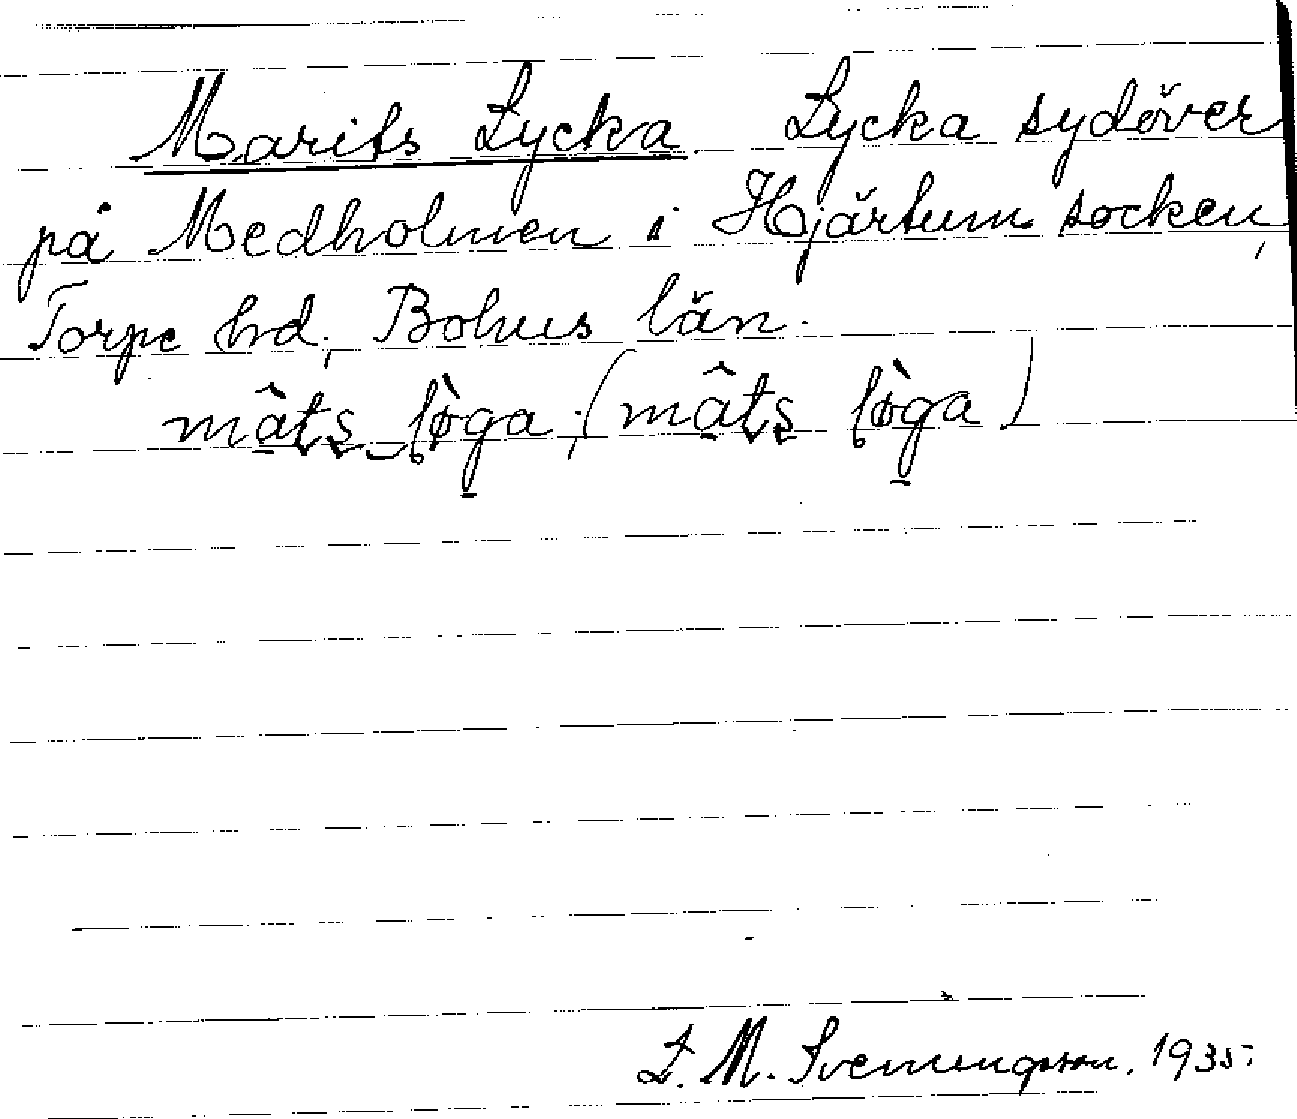 Marits Lycka. Lycka sydöver
på Medholmen i Hjärtum socken,
Torpe hd, Bohus län.
mâts lø̀ga; (mâts lø̀ga)
L. M. Svenungsson. 1935.